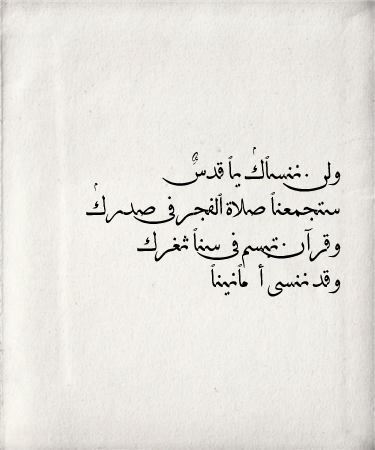 ولن ننساك يا قدسٌ
ستجمعنا صلاة الفجر في صدرك
وقرآن تبسم في سنا ثغرك
وقد ننسى أمانينا